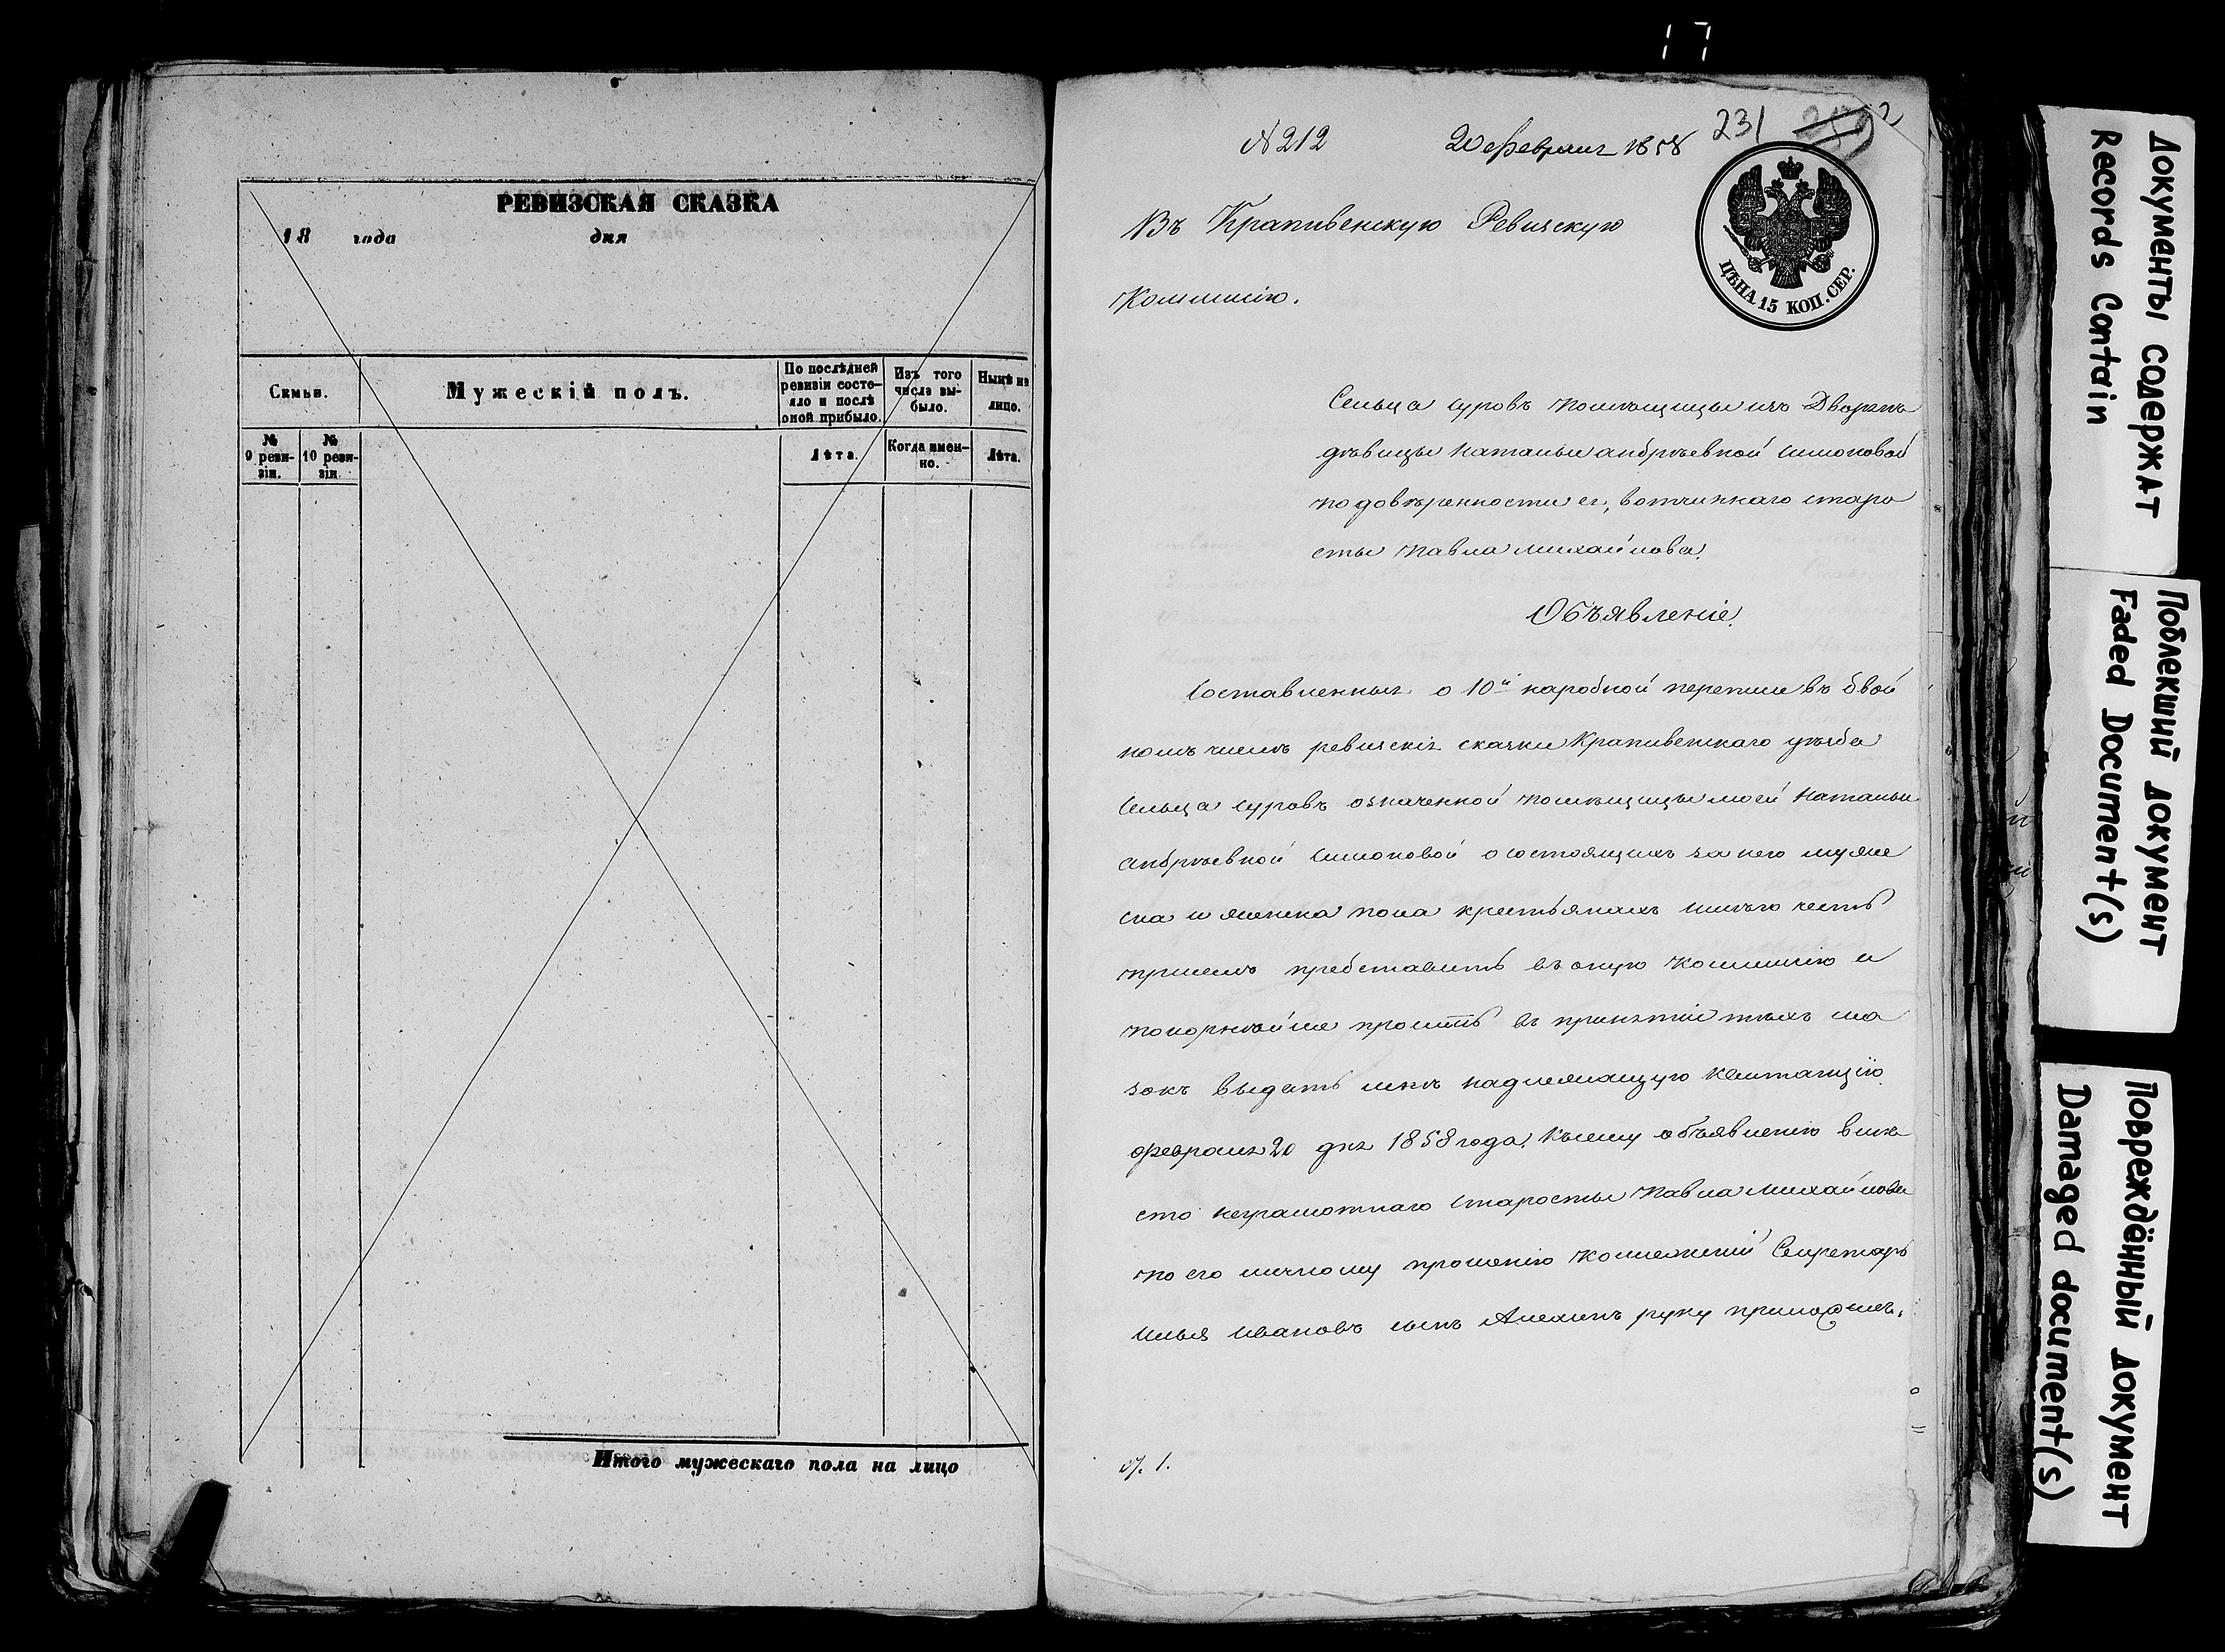 17
РЕВИЗСКАЯ СКАЗКА
18 года дня
Семьи.
Мужескій полъ.
По послѣдней ревизіи состо-
яло и послѣ
оной прибыло.
Изъ того
числа вы-
было.
Нынѣ на
лицо.
№
9 реви-
зіи.
№
10 реви-
зіи.
Лѣта.
Когда имен-
но.
Лѣта.
Итого мужескаго пола на лицо
№ 212 20 февраля 1858 231
ЦѢНА 15 КОП. СЕР.
Въ Крапивенскую Ревизскую
Коммисію.
Сельца Суровъ помѣщицы изъ Дворянъ
дѣвицы Натальи Андрѣевной Симоновой
по довѣренности ея, вотчиннаго старо
сты Павла Михайлова.
Объявленіе.
Составленныя о 10й народной переписи въ двой
номъ числѣ ревизскія сказки Крапивенскаго уѣзда
Сельца Суровъ означенной помѣщицы моей Натальи
Андрѣевной Симоновой о состоящихъ за нею муже
ска и женска пола крестьянахъ имѣю честь
при семъ представить въ оную Коммисію и
покорнѣйше просить въ принятіи тѣхъ ска
зокъ выдать мнѣ надлежащую квитанцію.
февраля 20 дня 1858 года. Къ сему объявленію вмѣ
сто неграмотнаго Старосты Павла Михайлова
по его личному прошенію Коллежскій Секретарь
Илья Ивановъ сынъ Алехинъ руку приложилъ.
Документы содержат
Records Contain
Поблекший документ
Faded Document(s)
Повреждённый документ
Damaged document(s)